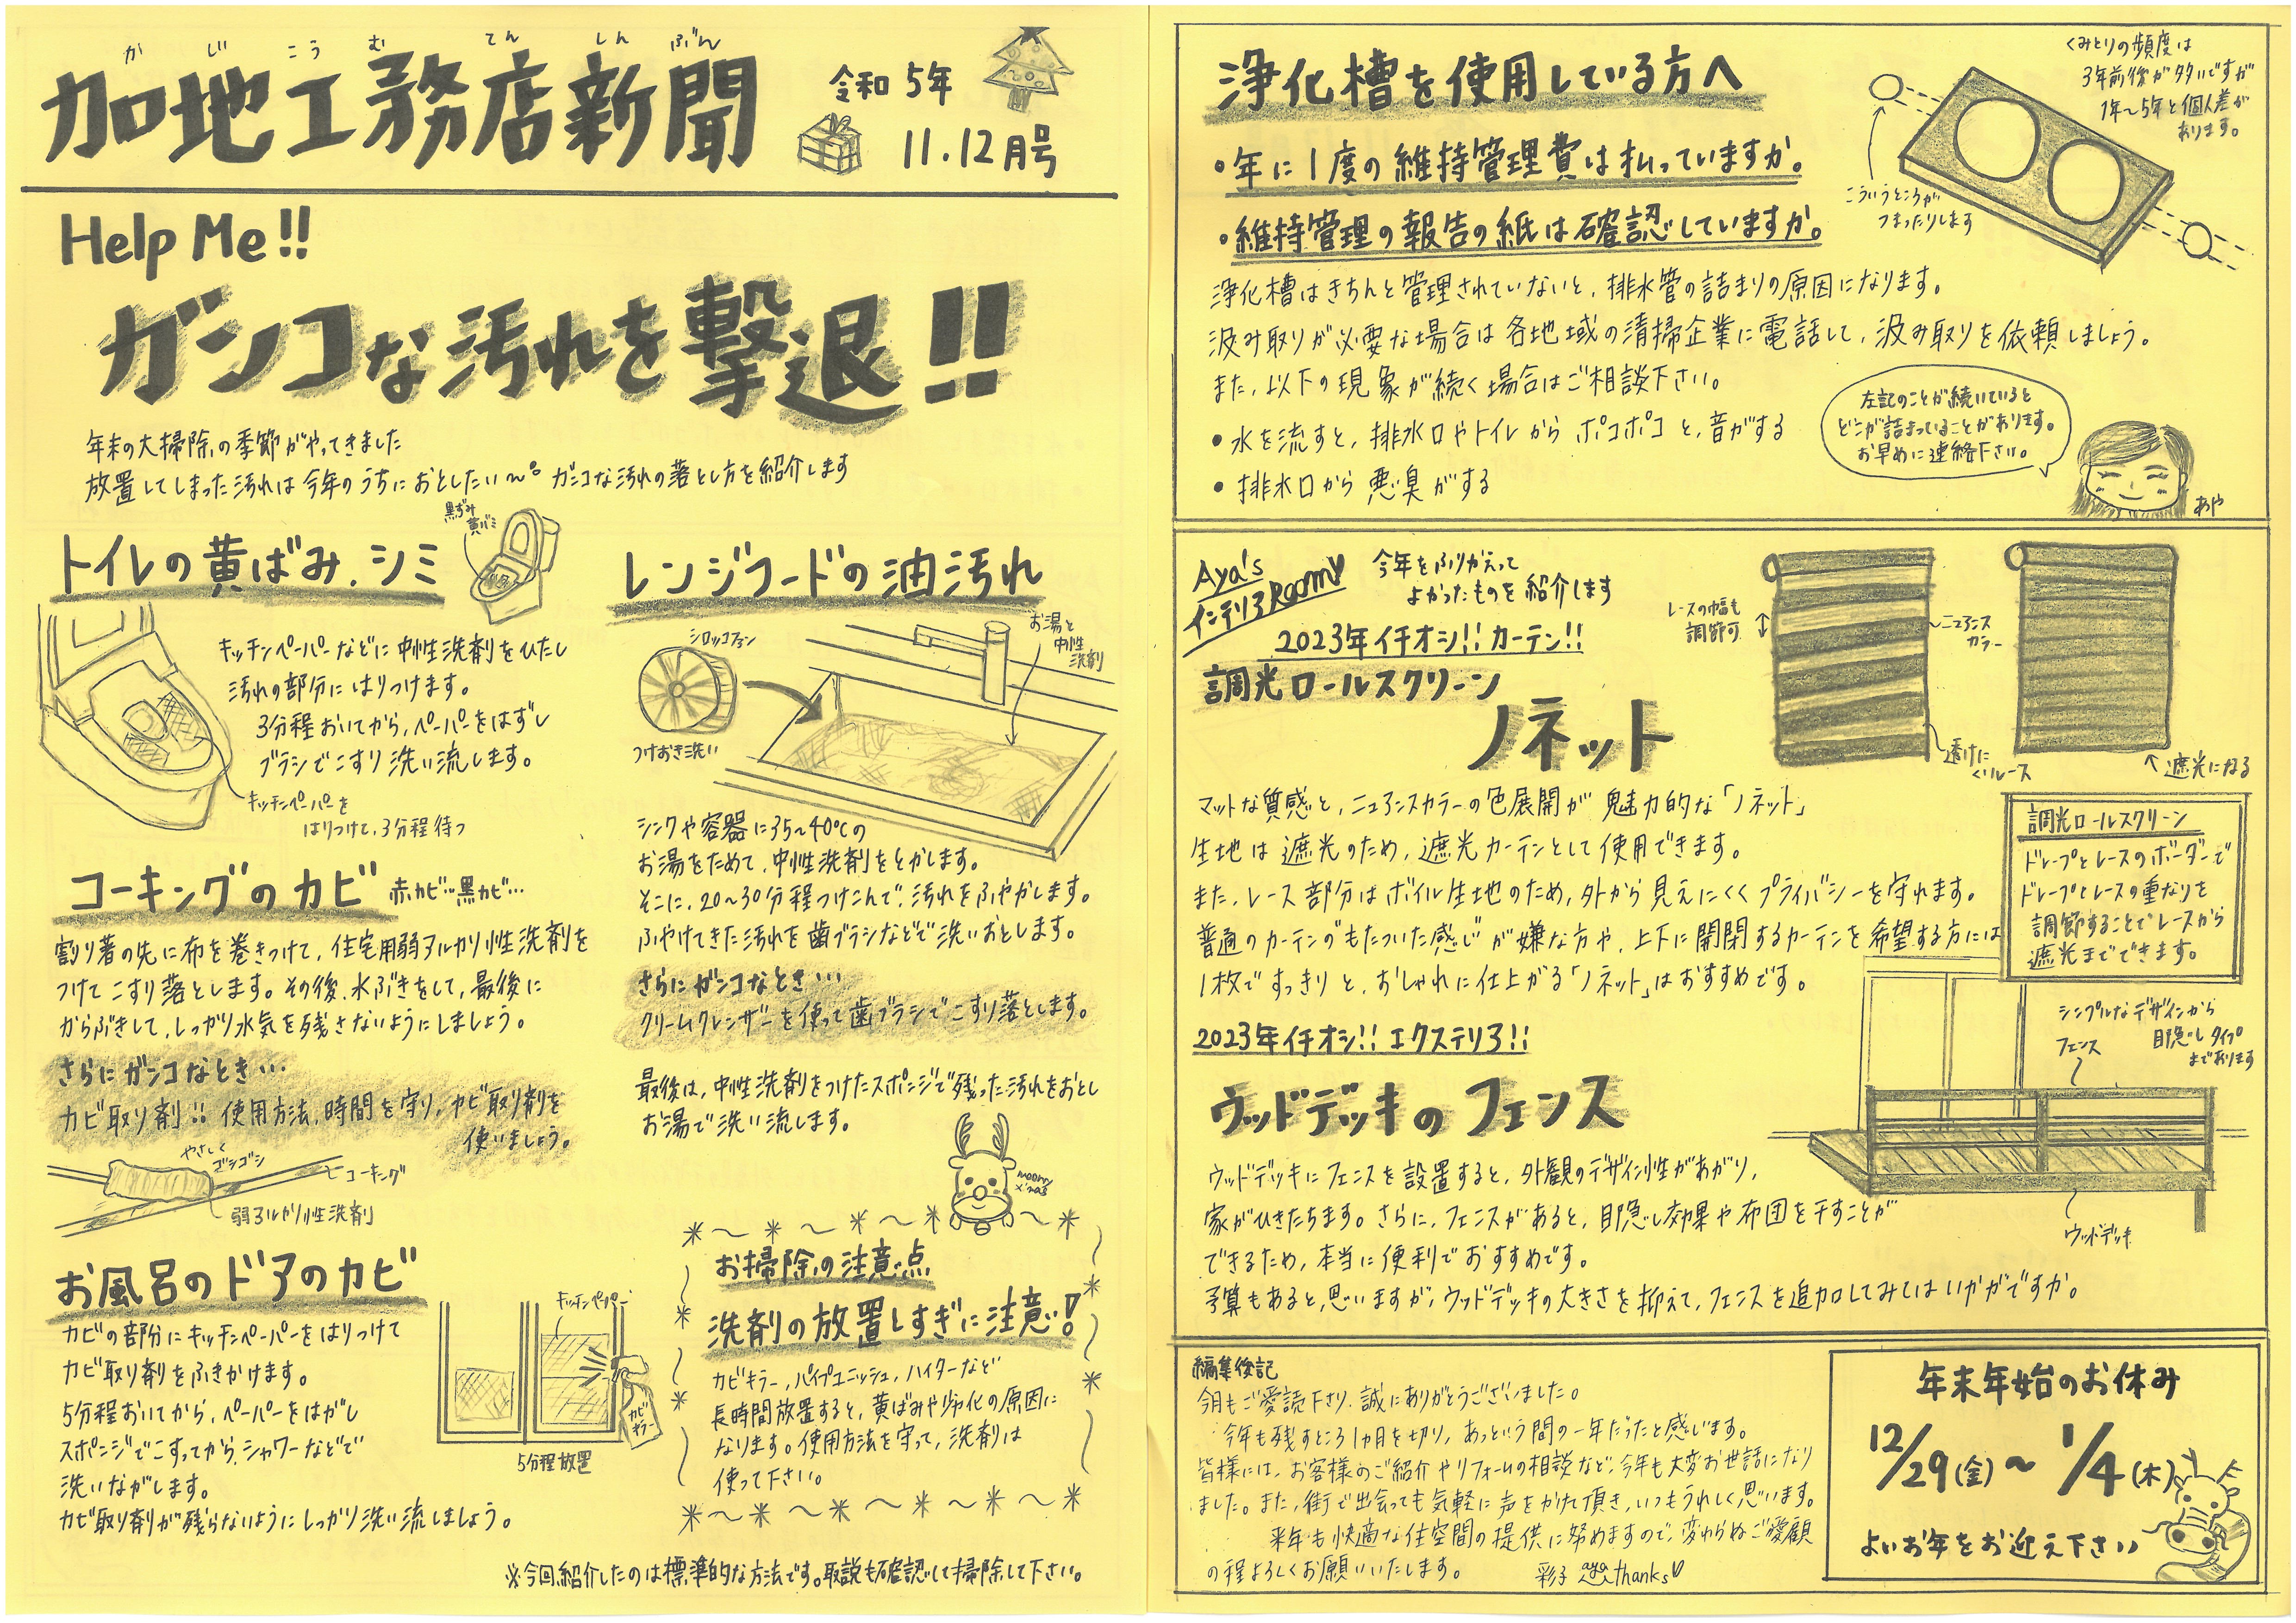 かじこうむてんしんぶん
加地工務店新聞
令和5年
11.12月号
Help Me!!
ガンコな汚れを撃退!!
年末の大掃除の季節がやってきました
放置してしまった汚れは今年のうちにおとしたい〜。ガンコな汚れの落とし方を紹介します
トイレの黄ばみ.シミ
黒ずみ
黄バミ
キッチンペーパーなどに中性洗剤をひたし
汚れの部分にはりつけます。
3分程おいてから、ペーパーをはずし
ブラシでこすり洗い流します。
キッチンペーパーを
はりつけて、3分程待つ
コーキングのカビ 赤カビ…黒カビ…
割り箸の先に布を巻きつけて、住宅用弱アルカリ性洗剤を
つけてこすり落とします。その後、水ぶきをして、最後に
からぶきして、しっかり水気を残さないようにしましょう。
さらにガンコなとき…
カビ取り剤!! 使用方法、時間を守り、カビ取り剤を
使いましょう。
やさしく
ゴシゴシ
コーキング
弱アルカリ性洗剤
お風呂のドアのカビ
カビの部分にキッチンペーパーをはりつけて
カビ取り剤をふきかけます。
5分程おいてから、ペーパーをはがし
スポンジでこすってから、シャワーなどで
洗いながします。
カビ取り剤が残らないようにしっかり洗い流しましょう。
キッチンペーパー
カビキラー
5分程放置
レンジフードの油汚れ
シロッコファン
つけおき洗い
お湯と
中性
洗剤
シンクや容器に35~40℃の
お湯をためて、中性洗剤をとかします。
そこに、20~30分程つけこんで、汚れをふやかします。
ふやけてきた汚れを歯ブラシなどで洗いおとします。
さらにガンコなとき…
クリームクレンザーを使って歯ブラシでこすり落とします。
最後は、中性洗剤をつけたスポンジで残った汚れをおとし
お湯で洗い流します。
merry
x'mas
お掃除の注意点
洗剤の放置しすぎに注意!
カビキラー,パイプユニッシュ,ハイターなど
長時間放置すると、黄ばみや劣化の原因に
なります。使用方法を守って、洗剤は
使って下さい。
※今回紹介したのは標準的な方法です。取説も確認して掃除して下さい。
浄化槽を使用している方へ
・年に1度の維持管理費は払っていますか。
・維持管理の報告の紙は確認していますか。
くみとりの頻度は
3年前後が多いですが
1年〜5年と個人差が
あります。
こういうところが
つまったりします
浄化槽はきちんと管理されていないと、排水管の詰まりの原因になります。
汲み取りが必要な場合は各地域の清掃企業に電話して、汲み取りを依頼しましょう。
また、以下の現象が続く場合はご相談下さい。
・水を流すと、排水口やトイレからポコポコと、音がする
・排水口から悪臭がする
左記のことが続いていると
どこが詰まっていることがあります。
お早めに連絡下さい。
あや
Aya's
インテリアRoom♡
今年をふりかえって
よかったものを紹介します
2023年イチオシ!! カーテン!!
調光ロールスクリーン
ノネット
レースの幅も
調節可
ニュアンス
カラー
透けに
くいレース
遮光になる
マットな質感と、ニュアンスカラーの色展開が魅力的な「ノネット」
生地は遮光のため、遮光カーテンとして使用できます。
また、レース部分はボイル生地のため、外から見えにくくプライバシーを守れます。
普通のカーテンのもたついた感じが嫌な方や、上下に開閉するカーテンを希望する方には
1枚ですっきりと、おしゃれに仕上がる「ノネット」はおすすめです。
調光ロールスクリーン
ドレープとレースのボーダーで
ドレープとレースの重なりを
調節することでレースから
遮光までできます。
2023年イチオシ!! エクステリア!!
ウッドデッキのフェンス
シンプルなデザインから
目隠しタイプ
まであります
フェンス
ウッドデッキ
ウッドデッキにフェンスを設置すると、外観のデザイン性があがり、
家がひきたちます。さらに、フェンスがあると、目隠し効果や布団を干すことが
できるため、本当に便利でおすすめです。
予算もあると思いますが、ウッドデッキの大きさを抑えて、フェンスを追加してみてはいかがですか。
編集後記
今月もご愛読下さり、誠にありがとうございました。
今年も残すところ1ヵ月を切り、あっという間の一年だったと感じます。
皆様には、お客様のご紹介やリフォームの相談など、今年も大変お世話になり
ました。また、街で出会っても気軽に声をかけて頂き、いつもうれしく思います。
来年も快適な住空間の提供に努めますので、変わらぬご愛顧
の程よろしくお願いいたします。 彩子 aya thanks♡
年末年始のお休み
12/29(金)〜1/4(木)
よいお年をお迎え下さい